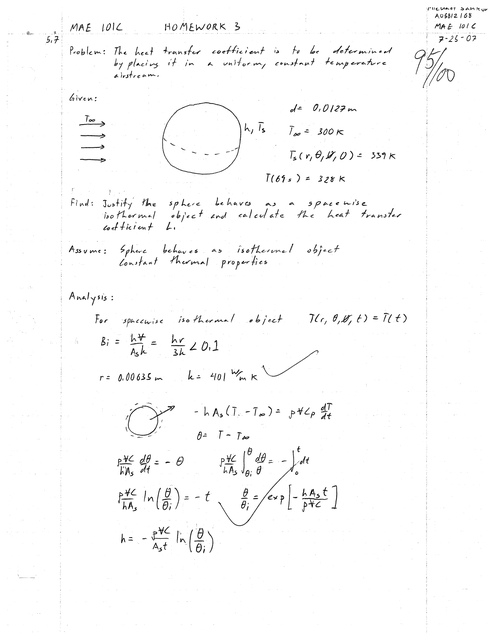 MAE 101C HOMEWORK 3
MAE 101C
7-25-07
95/100
5.7
Problem: The heat transfer coefficient is to be determined
by placing it in a uniform, constant temperature
airstream.
Given:
T∞
h, Ts
d = 0.0127 m
T∞ = 300 K
Ts(r, θ, ∅, 0) = 339 K
T(69s) = 328 K
Find: Justify the sphere behaves as a spacewise
isothermal object and calculate the heat transfer
coefficient h.
Assume: Sphere behaves as isothermal object
Constant thermal properties
Analysis:
For spacewise isothermal object T(r, θ, ∅, t) = T(t)
Bi = hV/Ask = hr/3k < 0.1
r = 0.00635 m k = 401 W/m K
-hAs(T - T∞) = ρVCp dT/dt
θ = T - T∞
ρVC/hAs dθ/dt = -θ ρVC/hAs ∫θi^θ dθ/θ = -∫0^t dt
ρVC/hAs ln(θ/θi) = -t θ/θi = exp[-hAst/ρVC]
h = -ρVC/Ast ln(θ/θi)